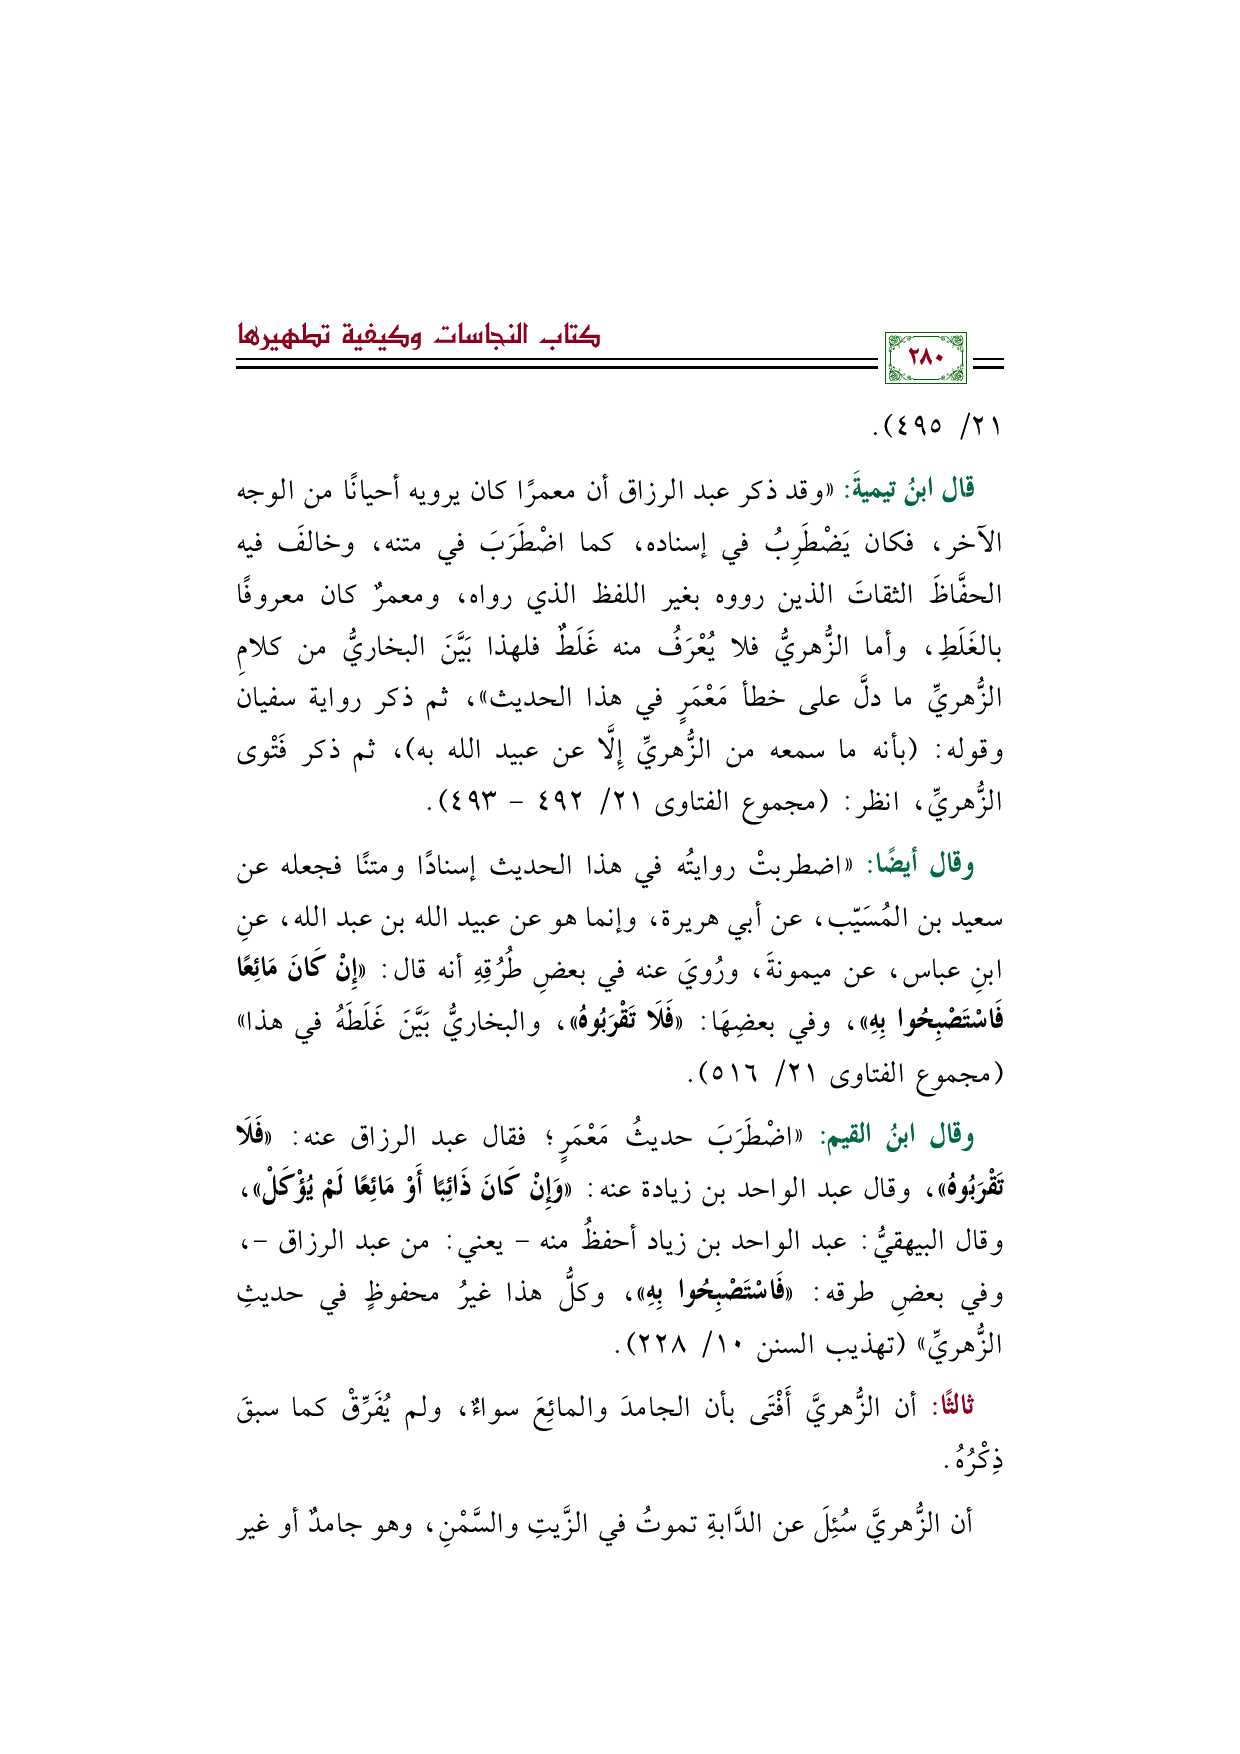 كتاب النجاسات وكيفية تطهيرها
٢٨٠
٢١/ ٤٩٥).
قال ابنُ تيميةَ: «وقد ذكر عبد الرزاق أن معمرًا كان يرويه أحيانًا من الوجه
الآخر، فكان يَضْطَرِبُ في إسناده، كما اضْطَرَبَ في متنه، وخالفَ فيه
الحفَّاظَ الثقاتَ الذين رووه بغير اللفظ الذي رواه، ومعمرٌ كان معروفًا
بالغَلَطِ، وأما الزُّهريُّ فلا يُعْرَفُ منه غَلَطٌ فلهذا بَيَّنَ البخاريُّ من كلامِ
الزُّهريِّ ما دلَّ على خطأ مَعْمَرٍ في هذا الحديث»، ثم ذكر رواية سفيان
وقوله: (بأنه ما سمعه من الزُّهريِّ إِلَّا عن عبيد الله به)، ثم ذكر فَتْوى
الزُّهريِّ، انظر: (مجموع الفتاوى ٢١/ ٤٩٢ – ٤٩٣).
وقال أيضًا: «اضطربتْ روايتُه في هذا الحديث إسنادًا ومتنًا فجعله عن
سعيد بن المُسَيّب، عن أبي هريرة، وإنما هو عن عبيد الله بن عبد الله، عنِ
ابنِ عباس، عن ميمونةَ، ورُويَ عنه في بعضِ طُرُقِهِ أنه قال: «إِنْ كَانَ مَائِعًا
فَاسْتَصْبِحُوا بِهِ»، وفي بعضِهَا: «فَلَا تَقْرَبُوهُ»، والبخاريُّ بَيَّنَ غَلَطَهُ في هذا»
(مجموع الفتاوى ٢١/ ٥١٦).
وقال ابنُ القيم: «اضْطَرَبَ حديثُ مَعْمَرٍ؛ فقال عبد الرزاق عنه: «فَلَا
تَقْرَبُوهُ»، وقال عبد الواحد بن زيادة عنه: «وَإِنْ كَانَ ذَائِبًا أَوْ مَائِعًا لَمْ يُؤْكَلْ»،
وقال البيهقيُّ: عبد الواحد بن زياد أحفظُ منه – يعني: من عبد الرزاق –،
وفي بعضِ طرقه: «فَاسْتَصْبِحُوا بِهِ»، وكلُّ هذا غيرُ محفوظٍ في حديثِ
الزُّهريِّ» (تهذيب السنن ١٠/ ٢٢٨).
ثالثًا: أن الزُّهريَّ أَفْتَى بأن الجامدَ والمائِعَ سواءٌ، ولم يُفَرِّقْ كما سبقَ
ذِكْرُهُ.
أن الزُّهريَّ سُئِلَ عن الدَّابةِ تموتُ في الزَّيتِ والسَّمْنِ، وهو جامدٌ أو غير